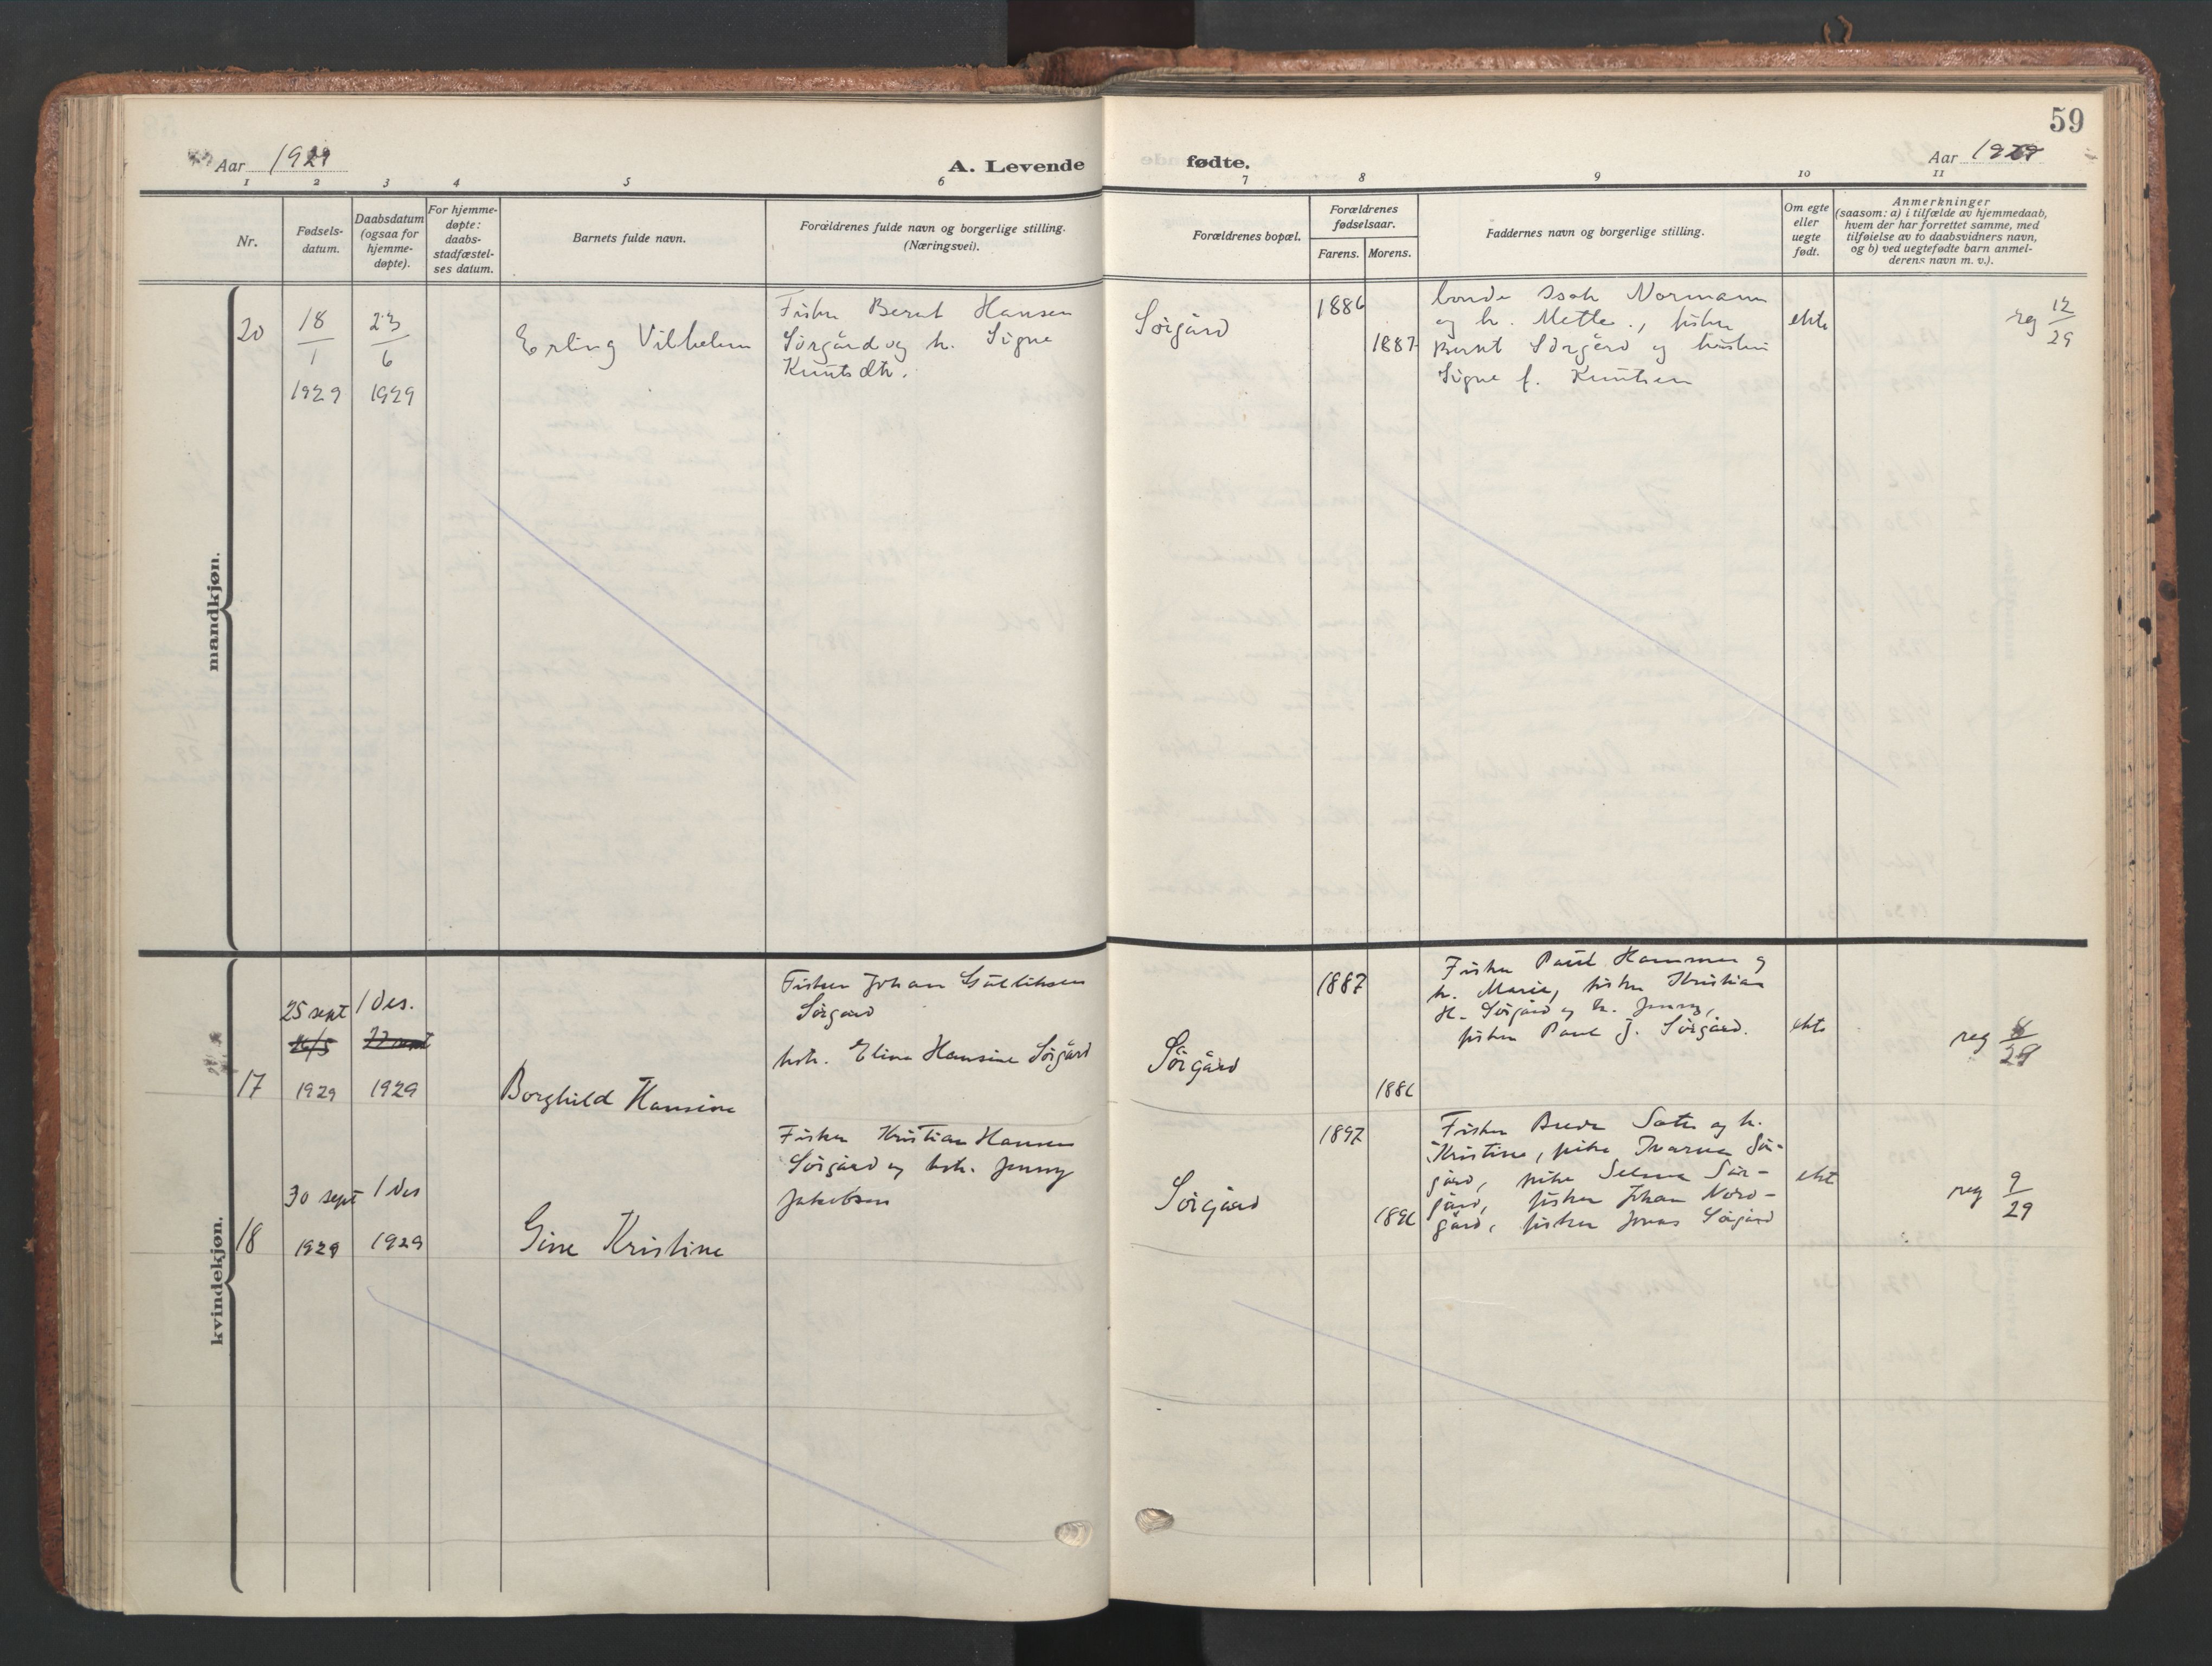 59
Aar 1929
A. Levende
fødte.
Aar 1929
1 2 3 4 5 6 7 8 9 10 11
Nr.
Fødsels-
datum.
Daabsdatum
(ogsaa for
hjemme-
døpte).
For hjemme-
døpte:
daabs-
stadfæstel-
ses datum.
Barnets fulde navn.
Forældrenes fulde navn og borgerlige stilling.
(Næringsvei).
Forældrenes bopæl.
Forældrenes
fødselsaar.
Farens. Morens.
Faddernes navn og borgerlige stilling.
Om egte
eller
uegte
født.
Anmerkninger
(saasom: a) i tilfælde av hjemmedaab,
hvem der har forrettet samme, med
tilføielse av to daabsvidners navn,
og b) ved uegtefødte barn anmel-
derens navn m. v.).
mandkjøn.
20
18/1
1929
23/6
1929
Erling Vilhelm
Fisker Bernt Hansen
Sørgård og h. Signe
Knutsdtr.
Sørgård
1886
1887
bonde Isak Normann
og h. Mette., fisker
Bernt Sørgård og hustru
Signe f. Knutsen
ekte
reg 12/29
kvindekjøn.
17
25 sept
1929
1 des.
1929
Borghild Hansine
Fisker Johan
Sørgård
hstr. Eline Hansine Sørgård
Sørgård
1887
1886
Fisker Paul Hammer og
h. Marie, fisker Kristian
H. Sørgård og h. Jenny,
fisker Paul J. Sørgård.
ekte
reg /29
18
30 sept
1929
1 des
1929
Gine Kristine
Fisker Kristian Hansen
Sørgård og hstr. Jenny
Jakobsen
Sørgård
1897
1896
Fisker og h.
Kristine, pike Sør-
gård, pike Selma Sør-
gård, fisker Johan Nord-
gård, fisker Jonas Sørgård
ekt
reg 9/29